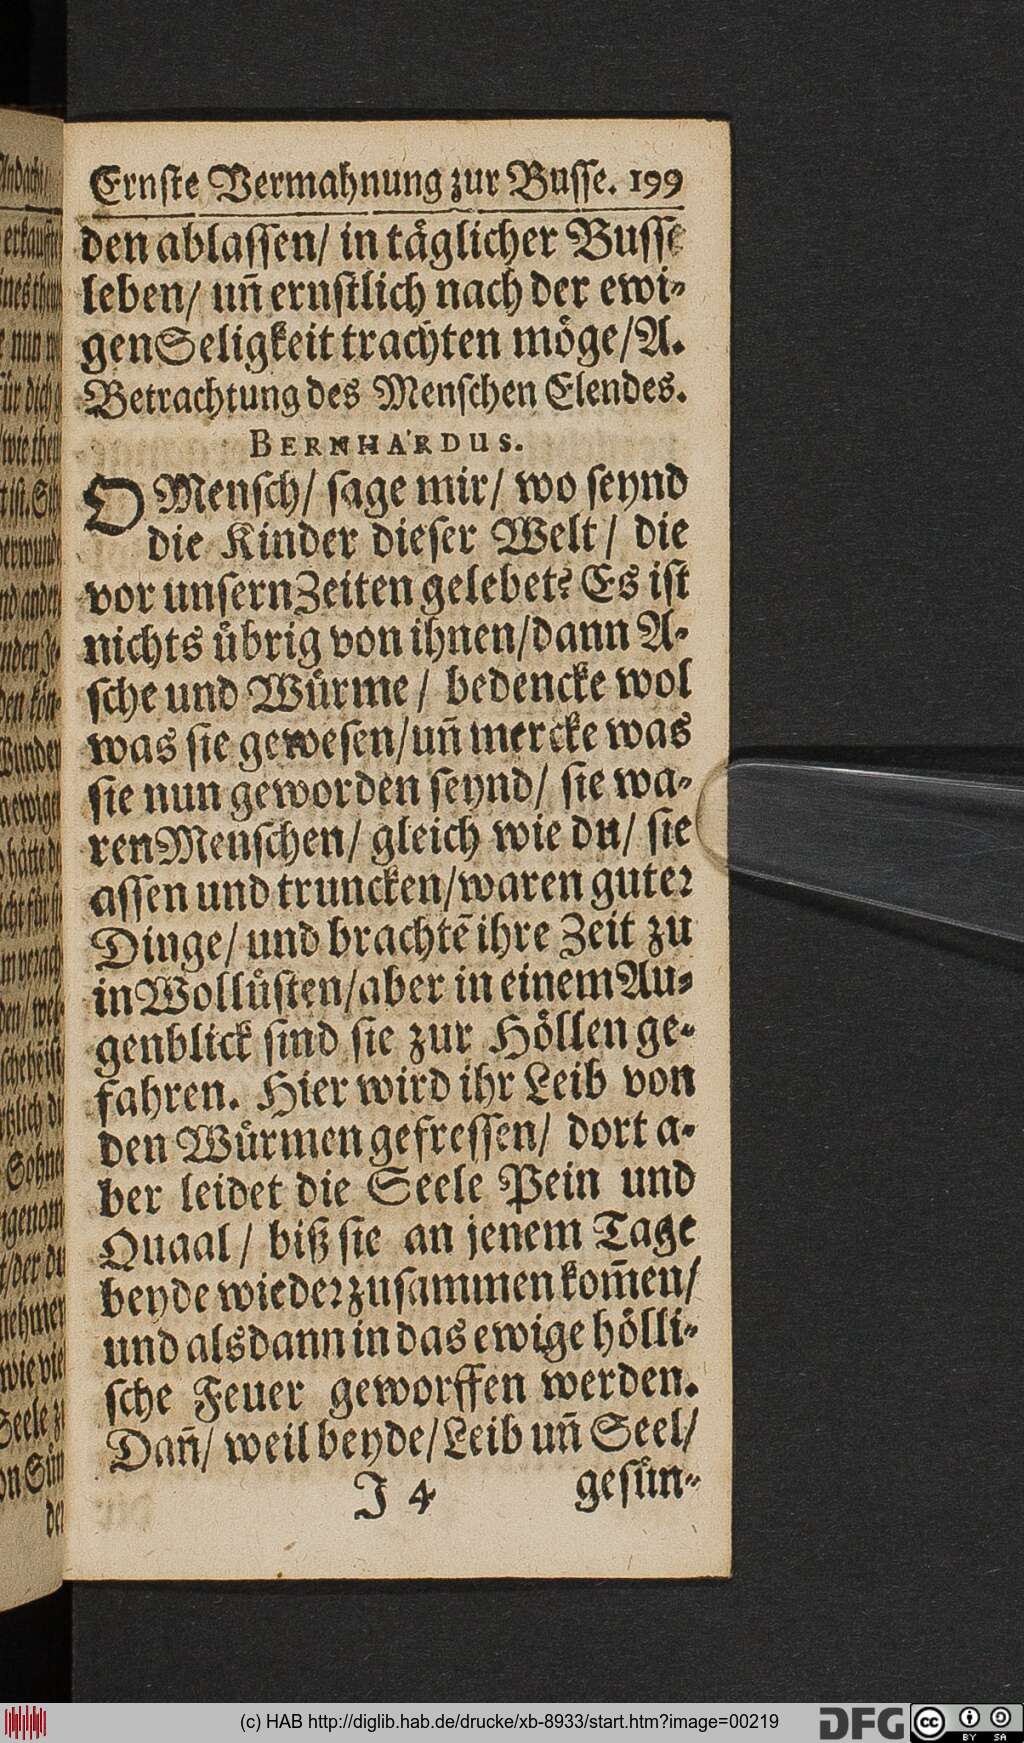 Ernste Vermahnung zur Busse. 199
den ablassen/ in täglicher Busse
leben/ uñ ernstlich nach der ewi-
gen Seligkeit trachten möge/ A.
Betrachtung des Menschen Elendes.
BERNHARDUS.
O Mensch/ sage mir/ wo seynd
die Kinder dieser Welt/ die
vor unsern Zeiten gelebet? Es ist
nichts übrig von ihnen/ dann A-
sche und Würme/ bedencke wol
was sie gewesen/ uñ mercke was
sie nun geworden seynd/ sie wa-
ren Menschen/ gleich wie du/ sie
assen und truncken/ waren guter
Dinge/ und brachtē ihre Zeit zu
in Wollüsten/ aber in einem Au-
genblick sind sie zur Höllen ge-
fahren. Hier wird ihr Leib von
den Würmen gefressen/ dort a-
ber leidet die Seele Pein und
Quaal/ biß sie an jenem Tage
beyde wieder zusammen kom̃en/
und alsdann in das ewige hölli-
sche Feuer geworffen werden.
Dañ/ weil beyde/ Leib uñ Seel/
J 4 gesün-
(c) HAB http://diglib.hab.de/drucke/xb-8933/start.htm?image=00219
DFG cc BY SA